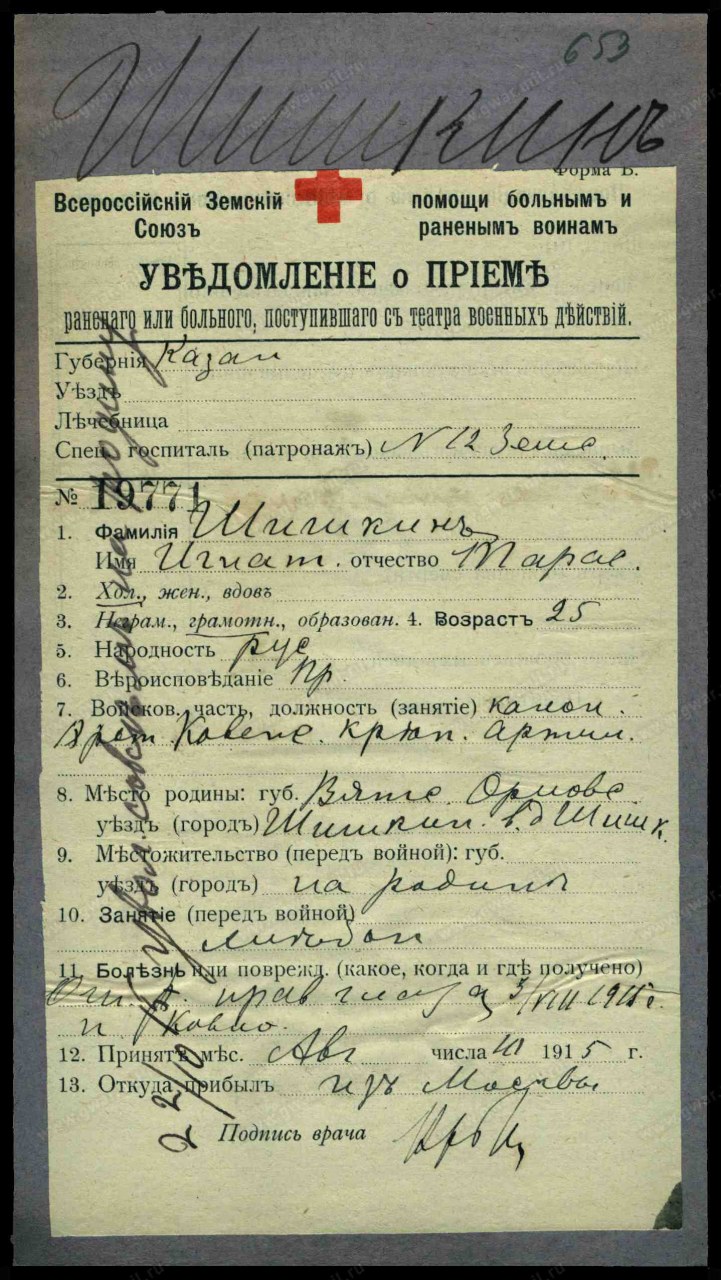 653
Шишкинъ
Форма В.
Всероссійскій Земскій Союзъ помощи больнымъ и раненымъ воинамъ
УВѢДОМЛЕНІЕ о ПРІЕМѢ
раненаго или больного, поступившаго съ театра военныхъ дѣйствій.
Губернія Казан
Уѣздъ
Лѣчебница
Спец. госпиталь (патронажъ) N 12 Земс.
№ 19771
1. Фамилія Шишкинъ
Имя Игнат. отчество Тарас.
2. Хол., жен., вдовъ
3. Неграм., грамотн., образован. 4. Возрастъ 25
5. Народность рус
6. Вѣроисповѣданіе пр.
7. Войсков. часть, должность (занятіе) канон.
Ковенс. крѣп. артил.
8. Мѣсто родины: губ. Вятс. Орловс.
уѣздъ (городъ) Шишкин. в. д Шишк.
9. Мѣстожительство (передъ войной): губ.
уѣздъ (городъ) на родинѣ
10. Занятіе (передъ войной)
11. Болѣзнь или поврежд. (какое, когда и гдѣ получено)
прав глаза 5/VIII 1915 г.
п Ковно.
12. Принятъ мѣс. Авг числа 1915 г.
13. Откуда прибылъ изъ Москвы
Подпись врача
22/10 на родину